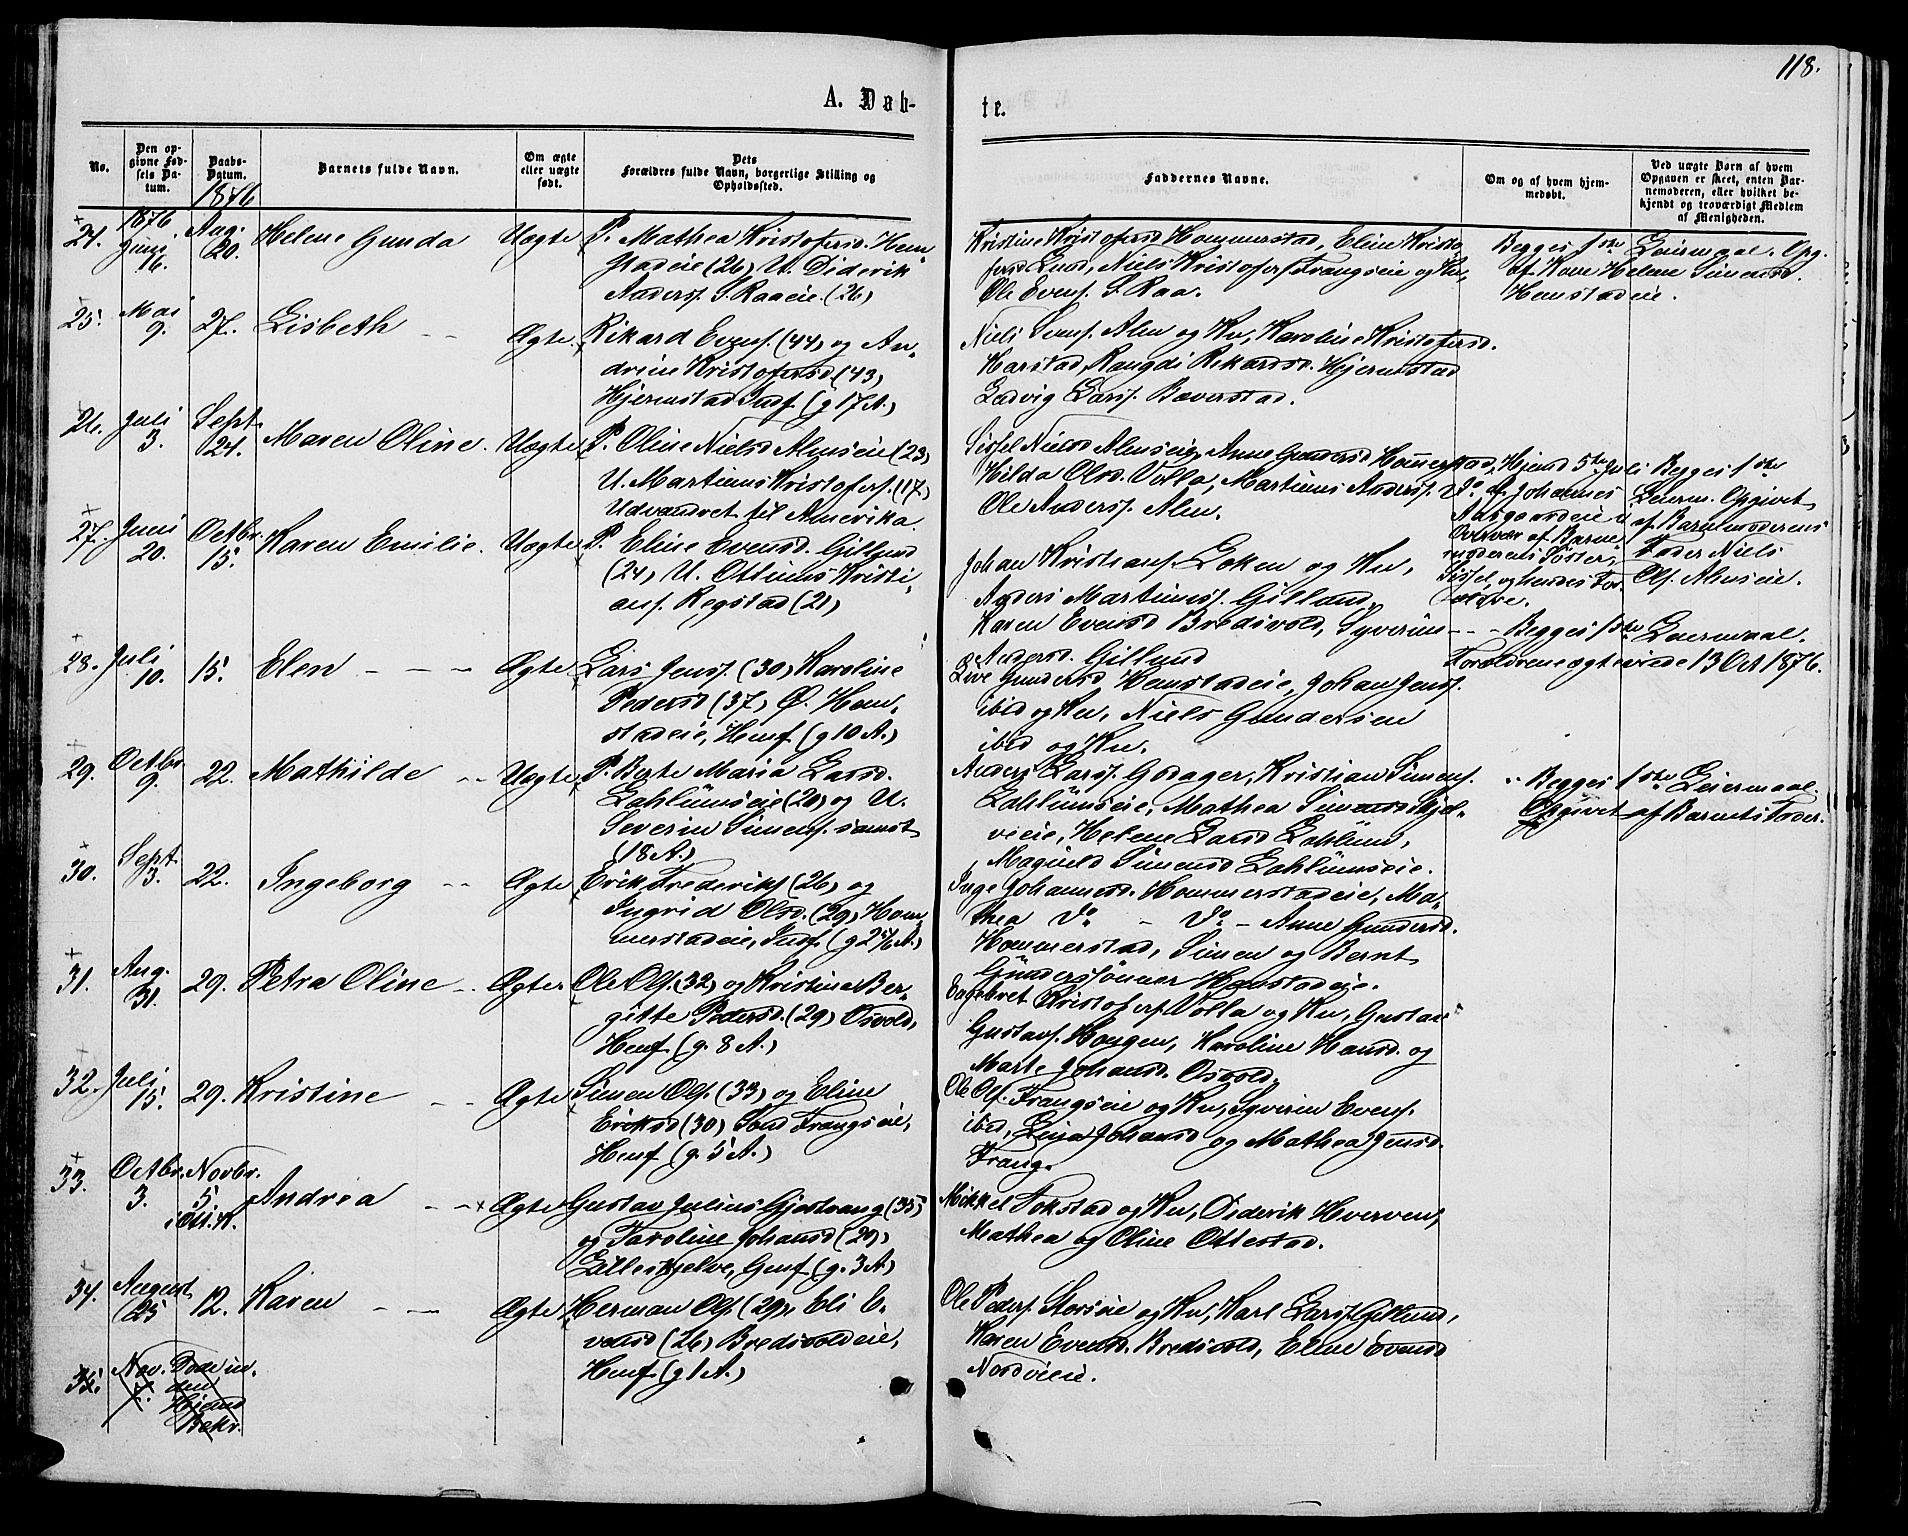 118.
A. Døb-
te.
No.
Den op-
givne Fød-
sels Da-
tum.
Daabs-
Datum.
1876
Barnets fulde Navn.
Om ægte
eller uægte
født.
Dets
Forældres fulde Navn, borgerlige Stilling og
Opholdssted.
Faddernes Navne.
Om og af hvem hjem-
medøbt.
Ved uægte Børn af hvem
Opgaven er skeet, enten Bar-
nemoderen, eller hvilket be-
kjendt og troværdigt Medlem
af Menigheden.
24.
1876.
Juni
16.
Aug.
20.
Helene Gunda
Uægte
P. Mathea Kristofersd. Hem-
stadeie (26) U. Diderik
Anders. S. Raaeie. (26)
Kristine Kristofersd Hommerstad, Eline Kristo
fersd Lund, Niels Kristofers Frangseie og Ku,
Ole Evens. S. Raa.
Begges 1ste Leiermaal. Opg.
af Kone Helene Simensd.
Hemstadeie.
25.
Mai
9.
27.
Lisbeth
Ægte
Rikard Evens. (44) og An-
drine Kristofersd (43)
Hjermstad Indf (g 17 A.)
Niels Svens. Alm og Ku, Karoline Kristofersd.
Harstad, Rangdi Rikardsd. Hjermstad
Ludvig Larss. Bæverstad.
26.
Juli
3.
Sept.
24.
Maren Oline.
Uægte
P. Oline Nielsd Almseie (23)
U. Martinus Kristofers. (17)
Udvandret til Amerika.
Sissel Nielsd Almseie, Anne Gundersd Hommerstad,
Hilda Olsd. Volla, Martinus Anderss. Do,
Ole Anderss. Alm.
Hjemd 5te Juli
af Johannes
Aasgaardeie i
Overvær af Barne
moderens Søster
Sissel, og hendes For-
ældre.
Begges 1ste
Leierm. Opgivet
af Barnemoderens
Fader Niels
Ols. Almseie.
27.
Juni
20.
Octbr.
15.
Karen Emilie.
Uægte
P. Eline Evensd. Gillund
(24) U. Ottinius Kristi-
ans. Regstad (21)
Johan Kristians. Løken og Ku,
Anders Martinuss. Gillund,
Karen Evensd Bredsvold, Syverine
Andersd. Gillund
Begges 1ste Leiermaal.
Forældrene ægteviede 13 Oct 1876.
28.
Juli
10.
15.
Elen
Ægte
Lars Jenss. (30) Karoline
Pedersd (37) Ø. Hem-
stadeie, Hemf (g 10 A.)
Live Gundersd Hemstadeie, Johan Jenss.
ibid og Ku, Niels Gundersen
ibid og Ku.
29.
Octbr.
9.
22.
Mathilde
Uægte
P. Berte Maria Larsd.
Lahlumseie (20) og U.
Severin Simens. samst
(18 A.)
Anders Larss. Godager, Kristian Simens.
Lahlumseie, Mathea Simensd Skjel-
veeie, Helene Larsd Lahlum,
Magnild Simensd Lahlumseie.
Begges 1ste Leiermaal.
Opgivet af Barnets Fader.
30.
Sept.
3.
22.
Ingeborg
Ægte
Erik Frederiks (26) og
Ingrid Olsd. (29) Hom-
merstadeie, Indf (g A.)
Inge Johannesd. Hommerstadeie, Ma-
thea Do - Do - Anne Gundersd.
Hommerstad, Simen og Bernt
Gunderssønner Hemstadeie.
31.
Aug.
31.
29.
Petra Oline
Ægte
Ole Ols. (32) og Kristine Ber-
gitte Pedersd. (29) Osvold,
Hemf (g. 8 A.)
Engebret Kristofers Volla og Ku, Gustav
Gustavs. Haugen, Karoline Hansd. og
Marte Johansd. Osvold.
32.
Juli
15.
29.
Kristine
Ægte
Simen Ols. (33) og Eline
Eriksd (30) Frangseie,
Hemf (g. 5 A.)
Ole Ols. Frangseie og Ku, Syverin Evens.
ibid, Lina Johansd og Mathea Jensd.
Frang.
33.
Octbr.
3.
Novbr.
5
i Ott. K.
Andrea
Ægte
Gustav Julius Gjøstvang (35)
og Karoline Johansd (29)
Lilleskjelve, Gemf (g. 3 A)
Mikkel Tokstad og Ku, Diderik Hverven,
Mathea og Oline Ottestad.
34.
August
25
12.
Karen
Ægte
Herman Ols. (29), Eli E-
vensd (26) Bredsvoldeie,
Hemf (g 1 A.)
Ole Peders. Storseie og Ku, Karl Larss. Gillund,
Karen Evensd. Bredsvold, Eline Evensd
Nordvieie.
35.
Nov.
7.
Døde in-
den
Hjemd
Bekr.